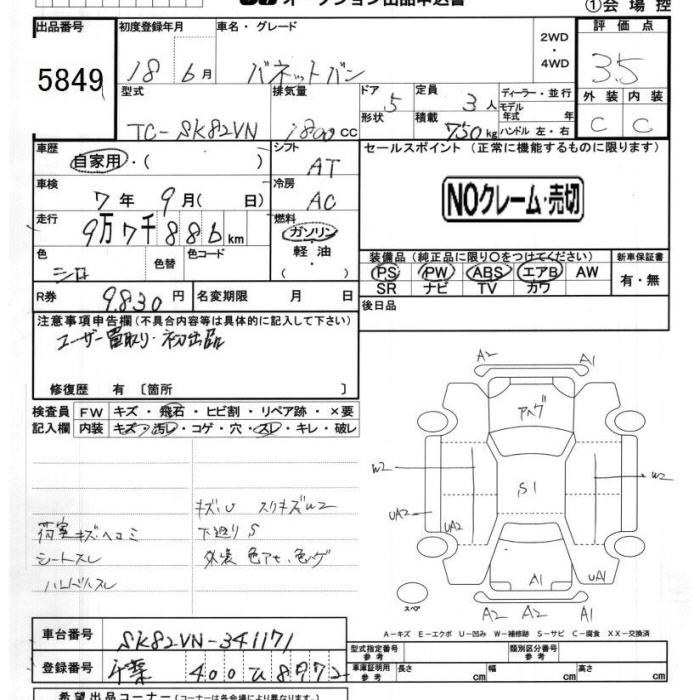 オークション出品申込書
①会場控
出品番号 初度登録年月 車名・グレード 2WD・4WD 評価点
5849 18 6月 バネットバン 3.5
型式 排気量 ドア形状 5 定員 3人 ディーラー・並行 外装 内装
TC-SK82VN 1800cc 積載 750kg モデル年式 年 C C
ハンドル 左・右
車歴 自家用・( ) シフト AT セールスポイント (正常に機能するものに限ります)
車検 7年 9月( 日) 冷房 AC NOクレーム・売切
走行 9万7千886km 燃料 ガソリン・軽油・( )
色 シロ 色替 色コード
装備品 (純正品に限り〇をつけてください) 新車保証書
PS PW ABS エアB AW 有・無
SR ナビ TV カワ
R券 9,830円 名変期限 月 日 後日品
注意事項申告欄(不具合内容等は具体的に記入して下さい)
ユーザー買取り・初出品
修復歴 有 〔箇所 〕
検査員 FW キズ・飛石・ヒビ割・リペア跡・×要
記入欄 内装 キズ・汚レ・コゲ・穴・スレ・キレ・破レ
A2 A1
W2 W2
S1
UA2 UA2
A1 UA1
A2 A2 A1
スペア
キズU スリキズW2
荷室キズ・ヘコミ 下廻りS
シートスレ 外装 色アセ、色ハゲ
ハンドルスレ
A-キズ E-エクボ U-凹み W-補修跡 S-サビ C-腐食 XX-交換済
車台番号 SK82VN-341171
登録番号 千葉 400 ひ 8972
型式指定番号 参考 類別区分番号 参考
車庫証明用 参考 長さ cm 幅 cm 高さ cm
希望出品コーナー(コーナーは各会場により異なります。)